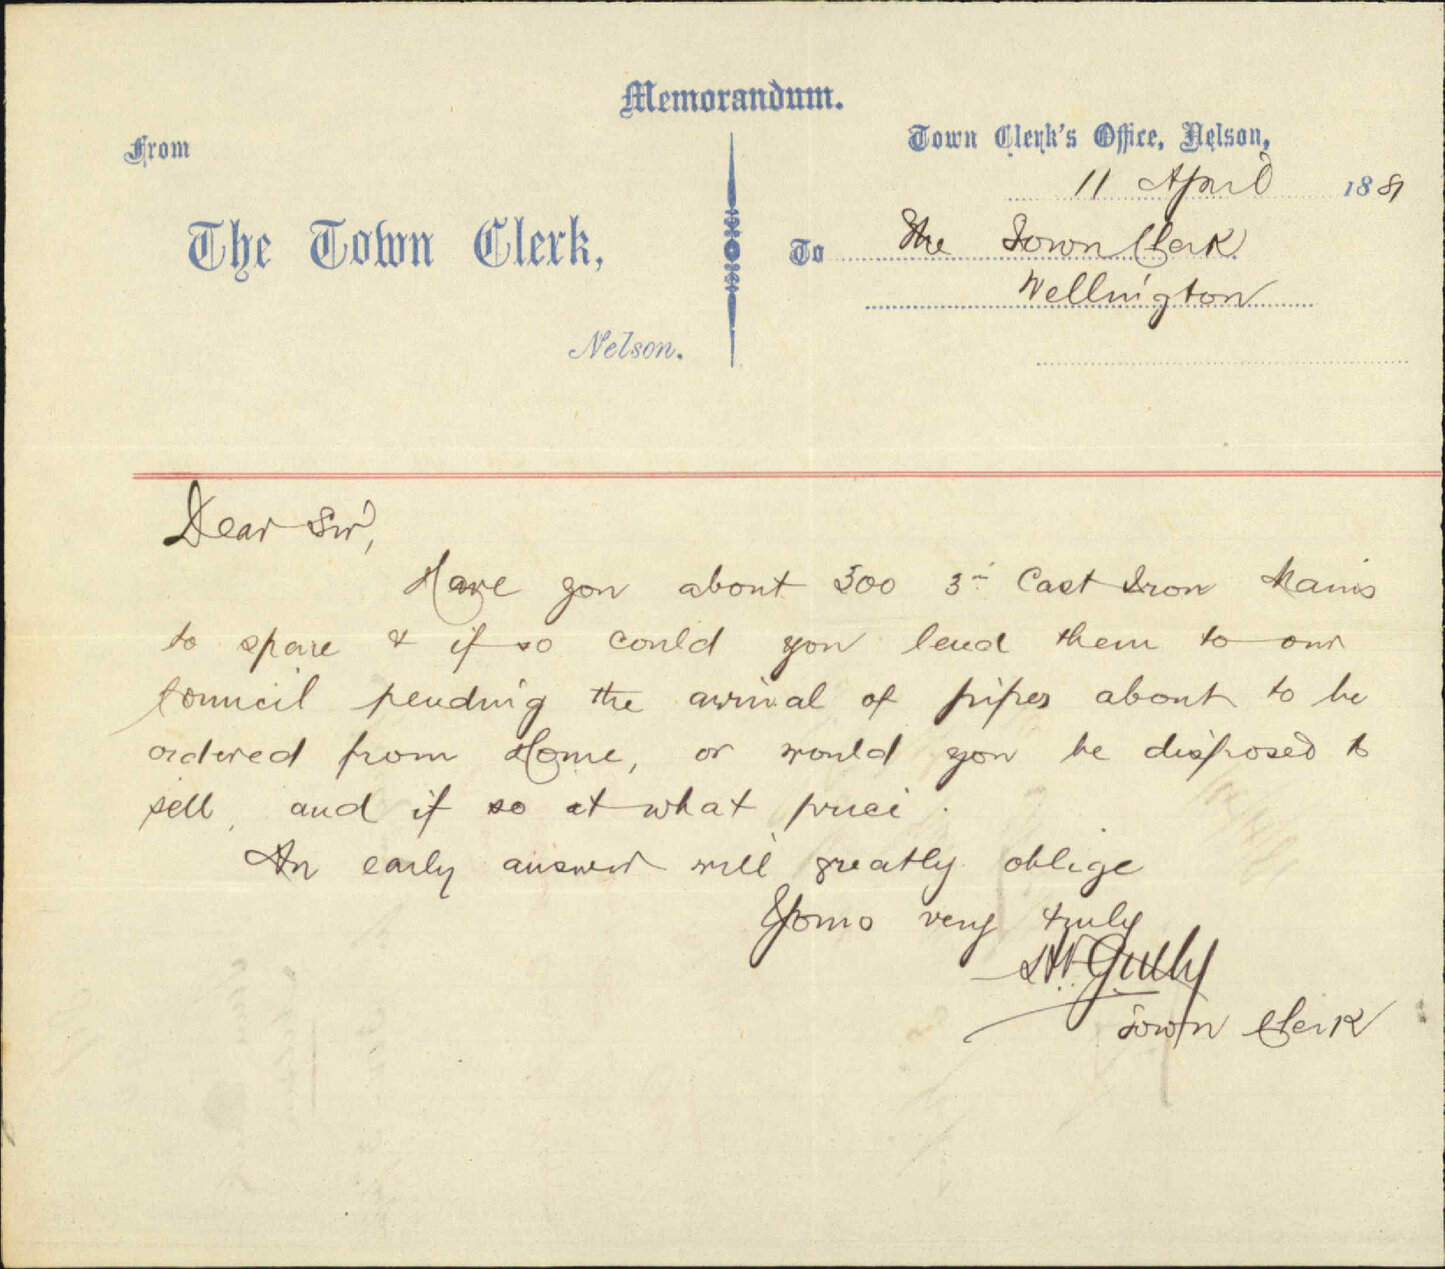 Memorandum.
From
Town Clerk's Office, Nelson,
11 April 1889
The Town Clerk,
To The Town Clerk
Wellington
Nelson.
Dear Sir,
Have you about 300 3in Cast Iron Mains
to spare & if so could you lend them to our
Council pending the arrival of pipes about to be
ordered from Home, or would you be disposed to
sell, and if so at what price.
An early answer will greatly oblige
Yours very truly
Gully
Town Clerk